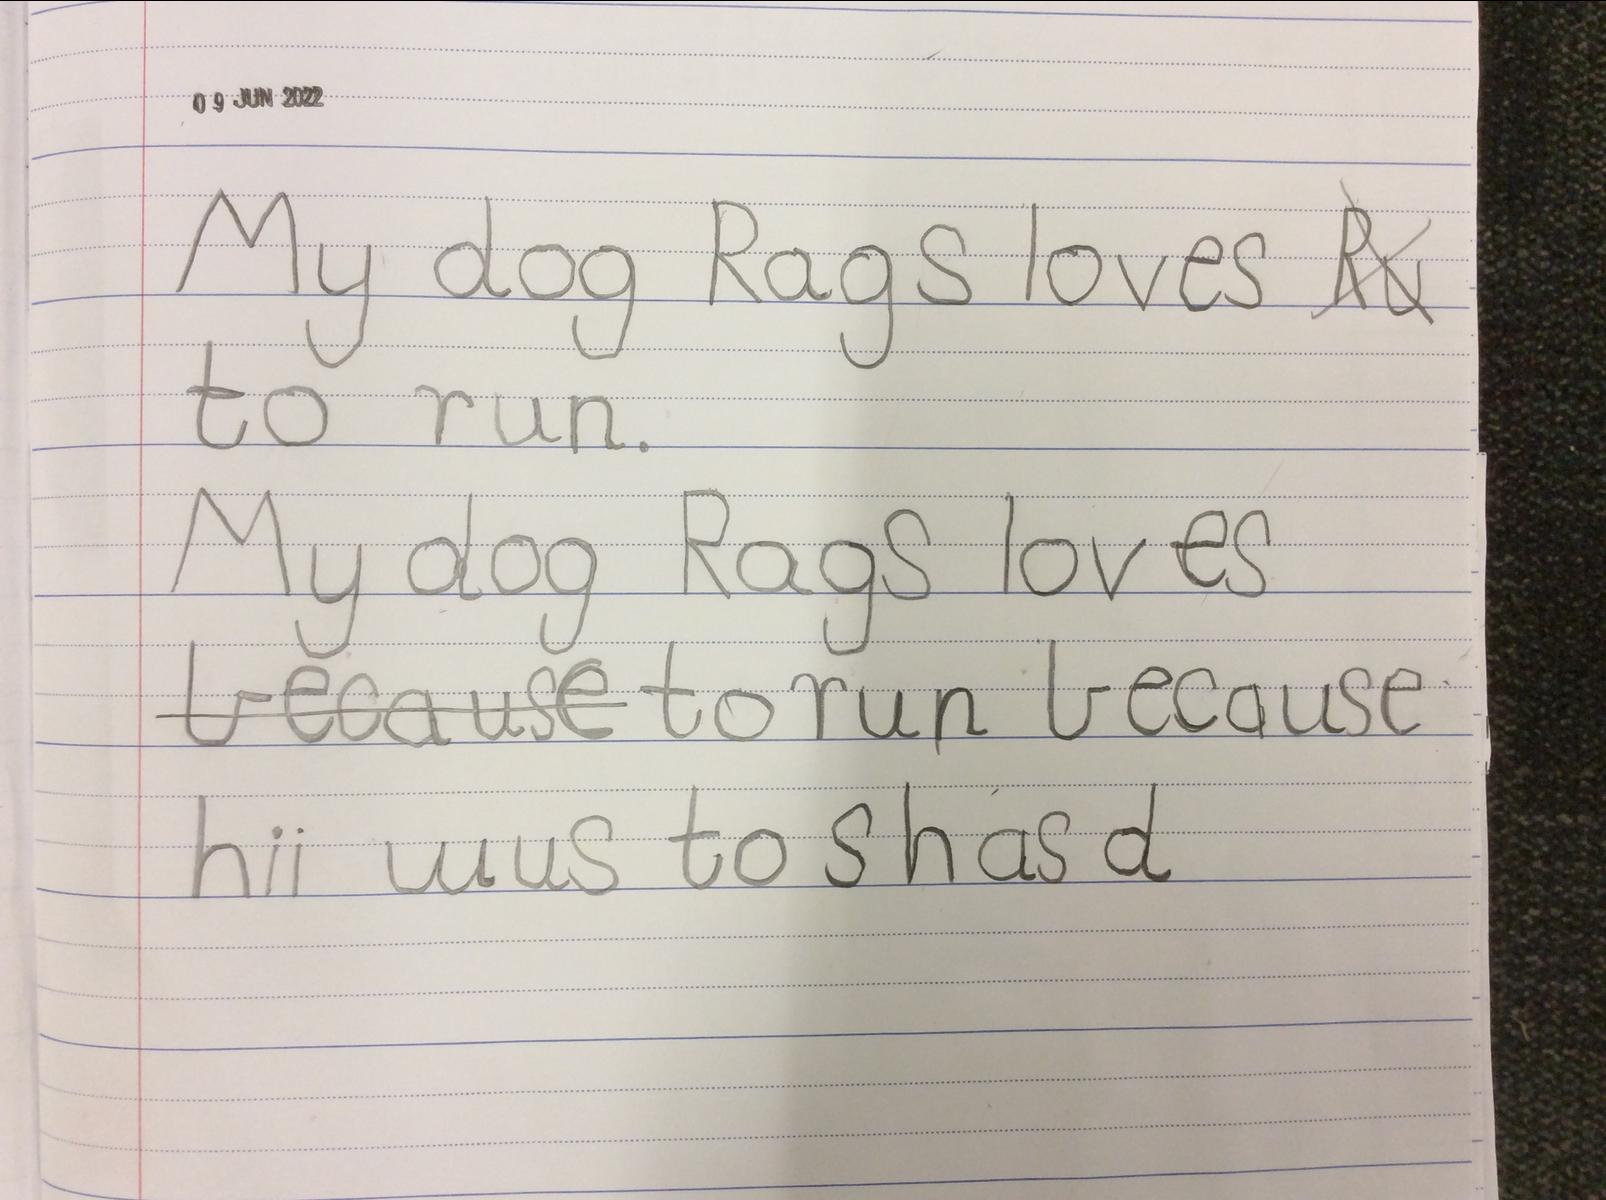 09 JUN 2022
My dog Rags loves Ru
to run.
My dog Rags loves
because to run because
hii wus to shas d